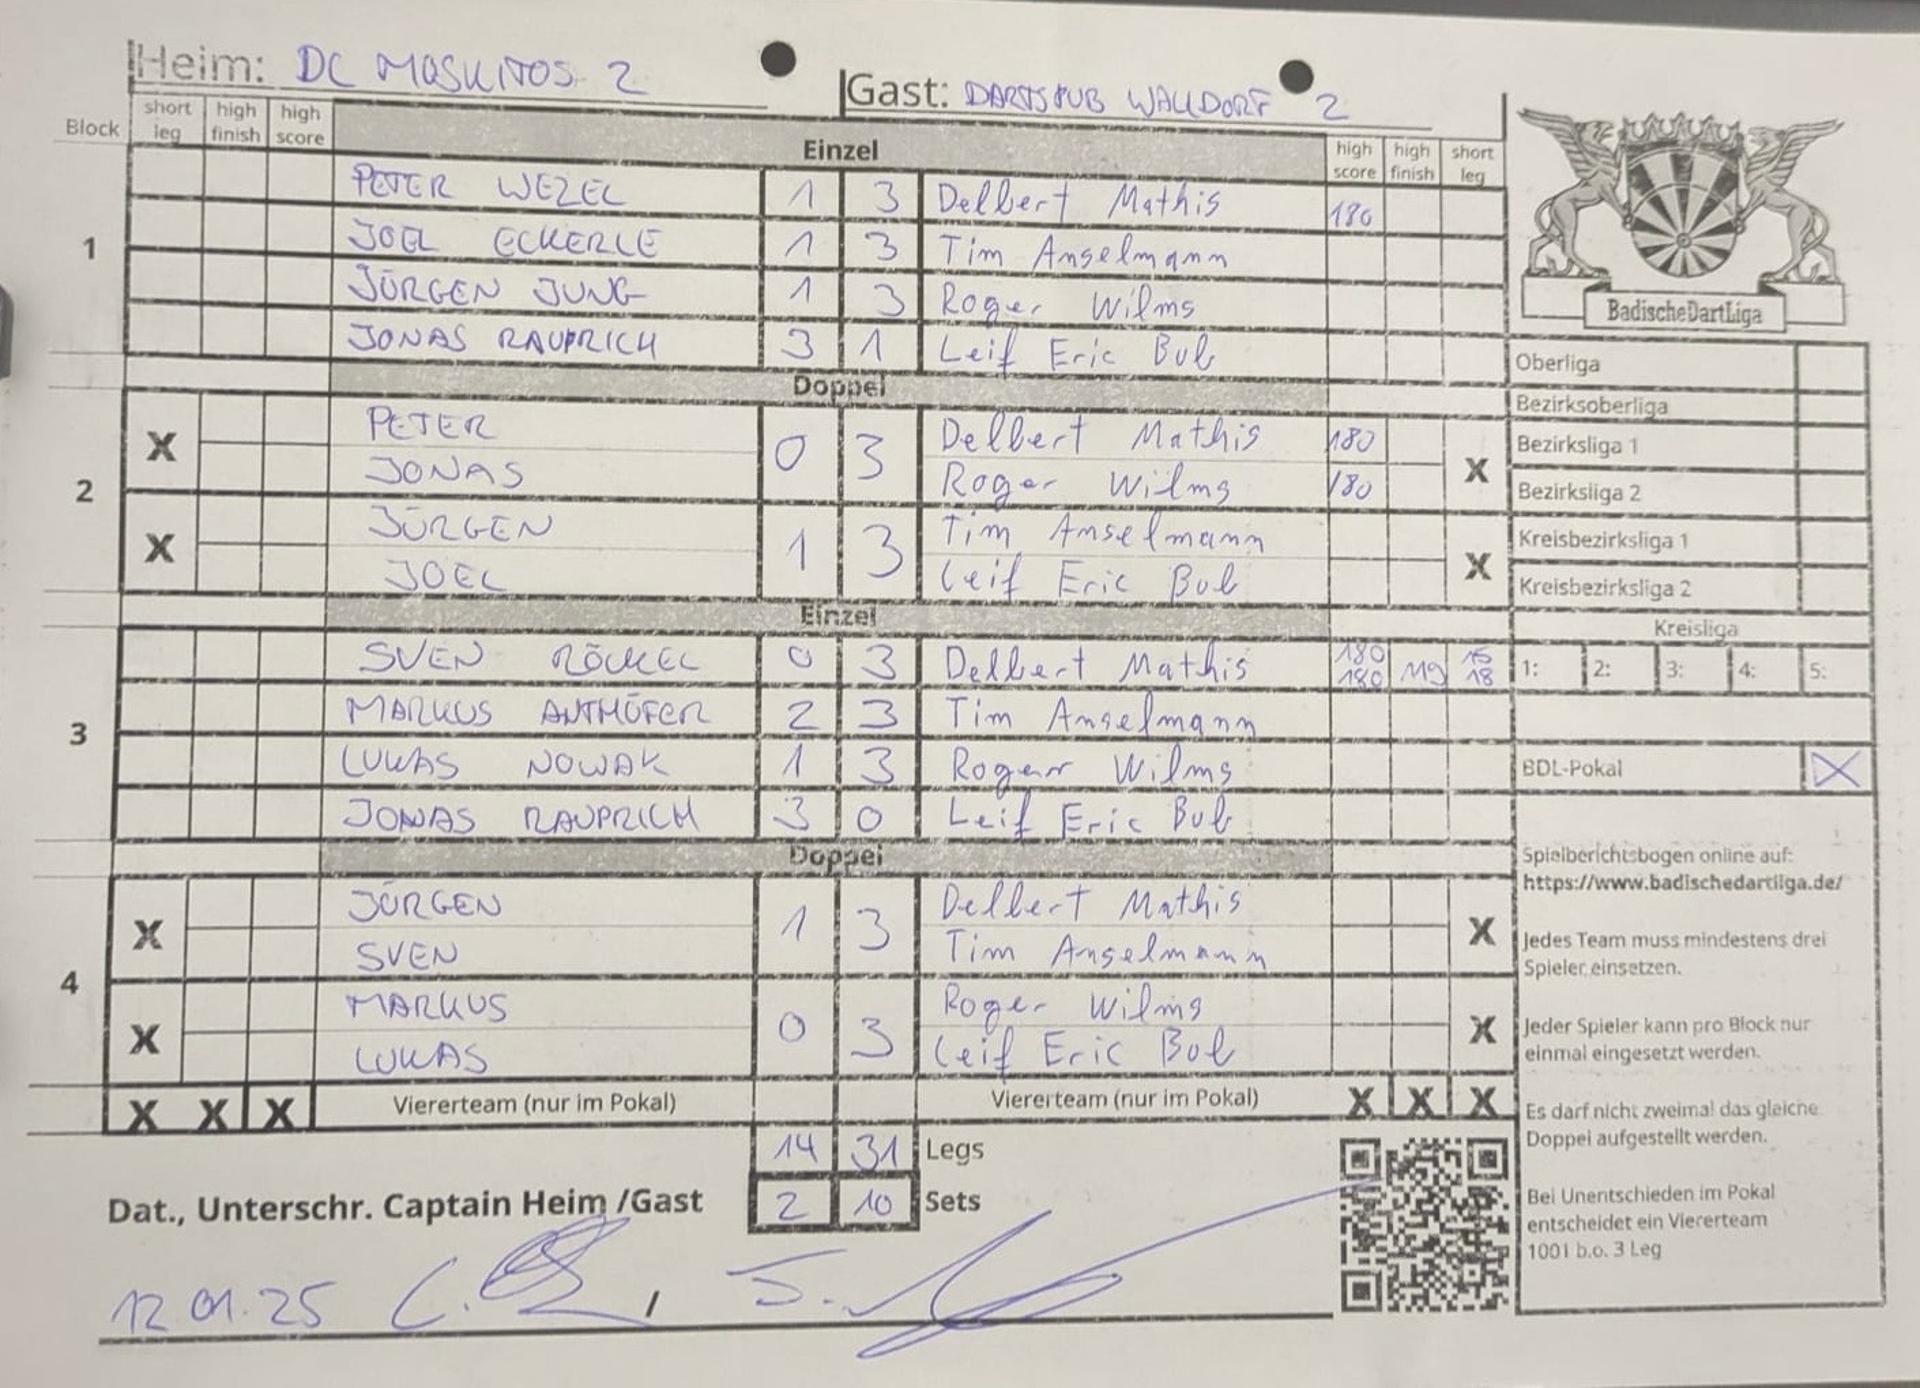 Heim: DC MOSKITOS 2
Gast: DARTSPUB WALLDORF 2
Block short leg high finish high score Einzel high score high finish short leg
1
PETER WEZEL 1 3 Delbert Mathis 180
JOEL ECKERLE 1 3 Tim Anselmann
JÜRGEN JUNG 1 3 Roger Wilms
JONAS RAUPRICH 3 1 Leif Eric Bub
Doppel
2
X PETER 0 3 Delbert Mathis 180 X
JONAS Roger Wilms 180
X JÜRGEN 1 3 Tim Anselmann X
JOEL Leif Eric Bub
Einzel
3
SVEN RÖCKEL 0 3 Delbert Mathis 180 180 119 15 18
MARKUS ANTHÖFER 2 3 Tim Anselmann
LUKAS NOWAK 1 3 Roger Wilms
JONAS RAUPRICH 3 0 Leif Eric Bub
Doppel
4
X JÜRGEN 1 3 Delbert Mathis X
SVEN Tim Anselmann
X MARKUS 0 3 Roger Wilms X
LUKAS Leif Eric Bub
X X X Viererteam (nur im Pokal) Viererteam (nur im Pokal) X X X
14 31 Legs
2 10 Sets
Dat., Unterschr. Captain Heim /Gast
12.01.25 /
BadischeDartLiga
Oberliga
Bezirksoberliga
Bezirksliga 1
Bezirksliga 2
Kreisbezirksliga 1
Kreisbezirksliga 2
Kreisliga
1: 2: 3: 4: 5:
BDL-Pokal X
Spielberichtsbogen online auf:
https://www.badischedartliga.de/
Jedes Team muss mindestens drei
Spieler einsetzen.
Jeder Spieler kann pro Block nur
einmal eingesetzt werden.
Es darf nicht zweimal das gleiche
Doppel aufgestellt werden.
Bei Unentschieden im Pokal
entscheidet ein Viererteam
1001 b.o. 3 Leg